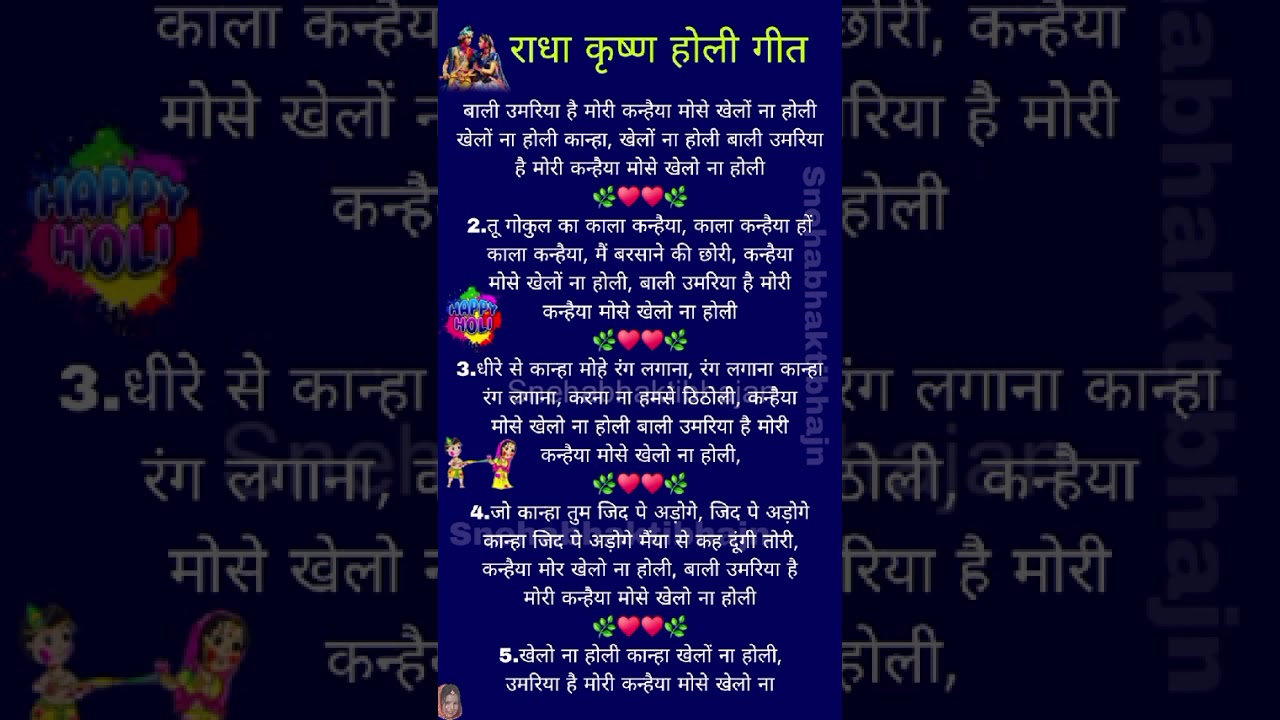 राधा कृष्ण होली गीत
बाली उमरिया है मोरी कन्हैया मोसे खेलों ना होली
खेलों ना होली कान्हा, खेलों ना होली बाली उमरिया
है मोरी कन्हैया मोसे खेलो ना होली
2.तू गोकुल का काला कन्हैया, काला कन्हैया हों
काला कन्हैया, मैं बरसाने की छोरी, कन्हैया
मोसे खेलों ना होली, बाली उमरिया है मोरी
कन्हैया मोसे खेलो ना होली
HAPPY
HOLI
3.धीरे से कान्हा मोहे रंग लगाना, रंग लगाना कान्हा
रंग लगाना, करना ना हमसे ठिठोली, कन्हैया
मोसे खेलो ना होली बाली उमरिया है मोरी
कन्हैया मोसे खेलो ना होली,
4.जो कान्हा तुम जिद पे अड़ोगे, जिद पे अड़ोगे
कान्हा जिद पे अड़ोगे मैंया से कह दूंगी तोरी,
कन्हैया मोर खेलो ना होली, बाली उमरिया है
मोरी कन्हैया मोसे खेलो ना होली
5.खेलो ना होली कान्हा खेलों ना होली,
उमरिया है मोरी कन्हैया मोसे खेलो ना
Snehabhaktibhajn